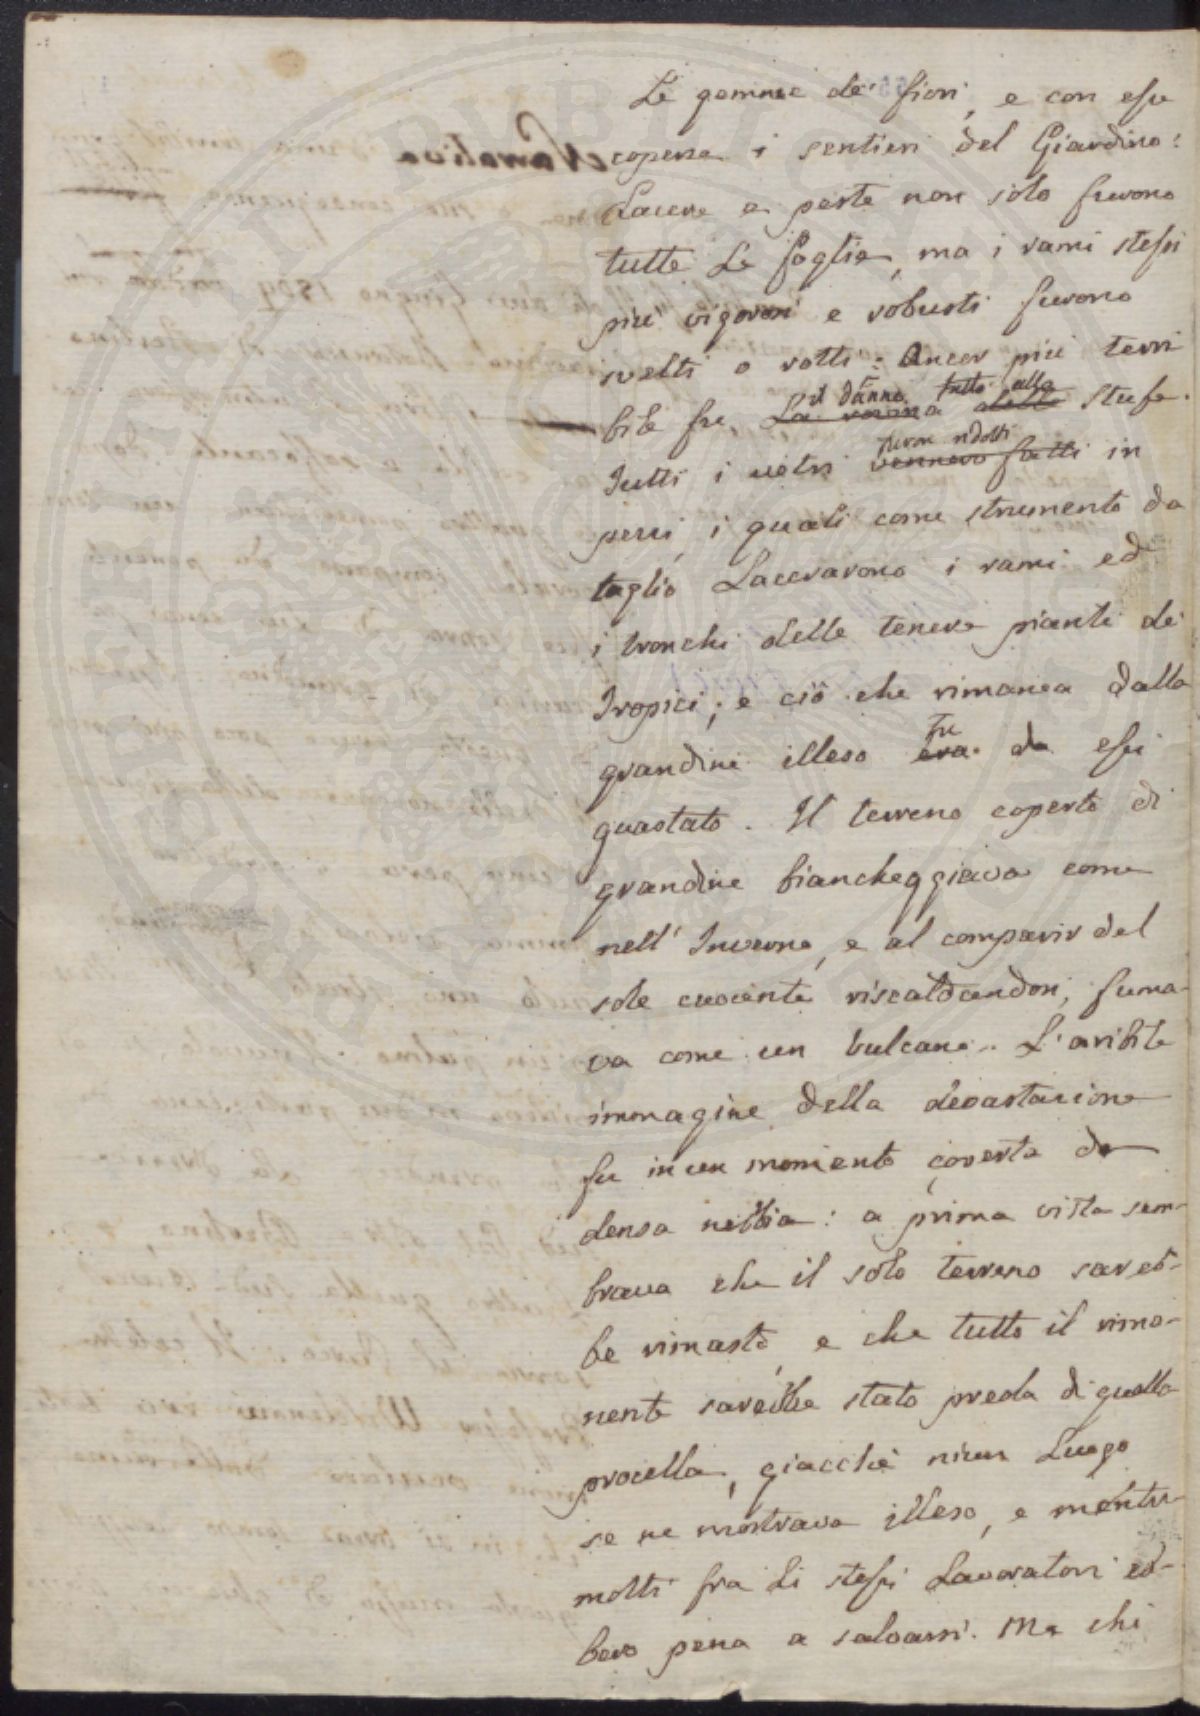 Le gemme de' fiori, e con esse
coperse i sentieri del Giardino:
Lacere e peste non solo furono
tutte Le foglie, ma i rami stessi
piu' vigorosi e robusti furono
svelti o rotti: Ancor più terri
bile fu, il danno fatto alle stufe.
Tutti i vetri furon ridotti in
pezzi, i quali come strumento da
taglio Lacerarono i rami ed
i tronchi delle tenere piante de'
Tropici; e ciò che rimanea dalla
grandine illeso fu da essi
guastato. Il terreno coperto di
grandine biancheggiava come
nell' Inverno, e al comparir del
sole cuocente riscaldandosi, fuma-
va come un bulcano. L'orribile
immagine della devastazione
fu in un momento coverta da
densa nebbia: a prima vista sem-
brava che il solo terreno sareb-
be rimasto, e che tutto il rima-
nente sarebbe stato preda di quella
procella, giacchè niun Luogo
se ne mostrava illeso, e mentre
molti fra li stessi Lavoratori eb-
bero pena a salvarsi. Ma chi